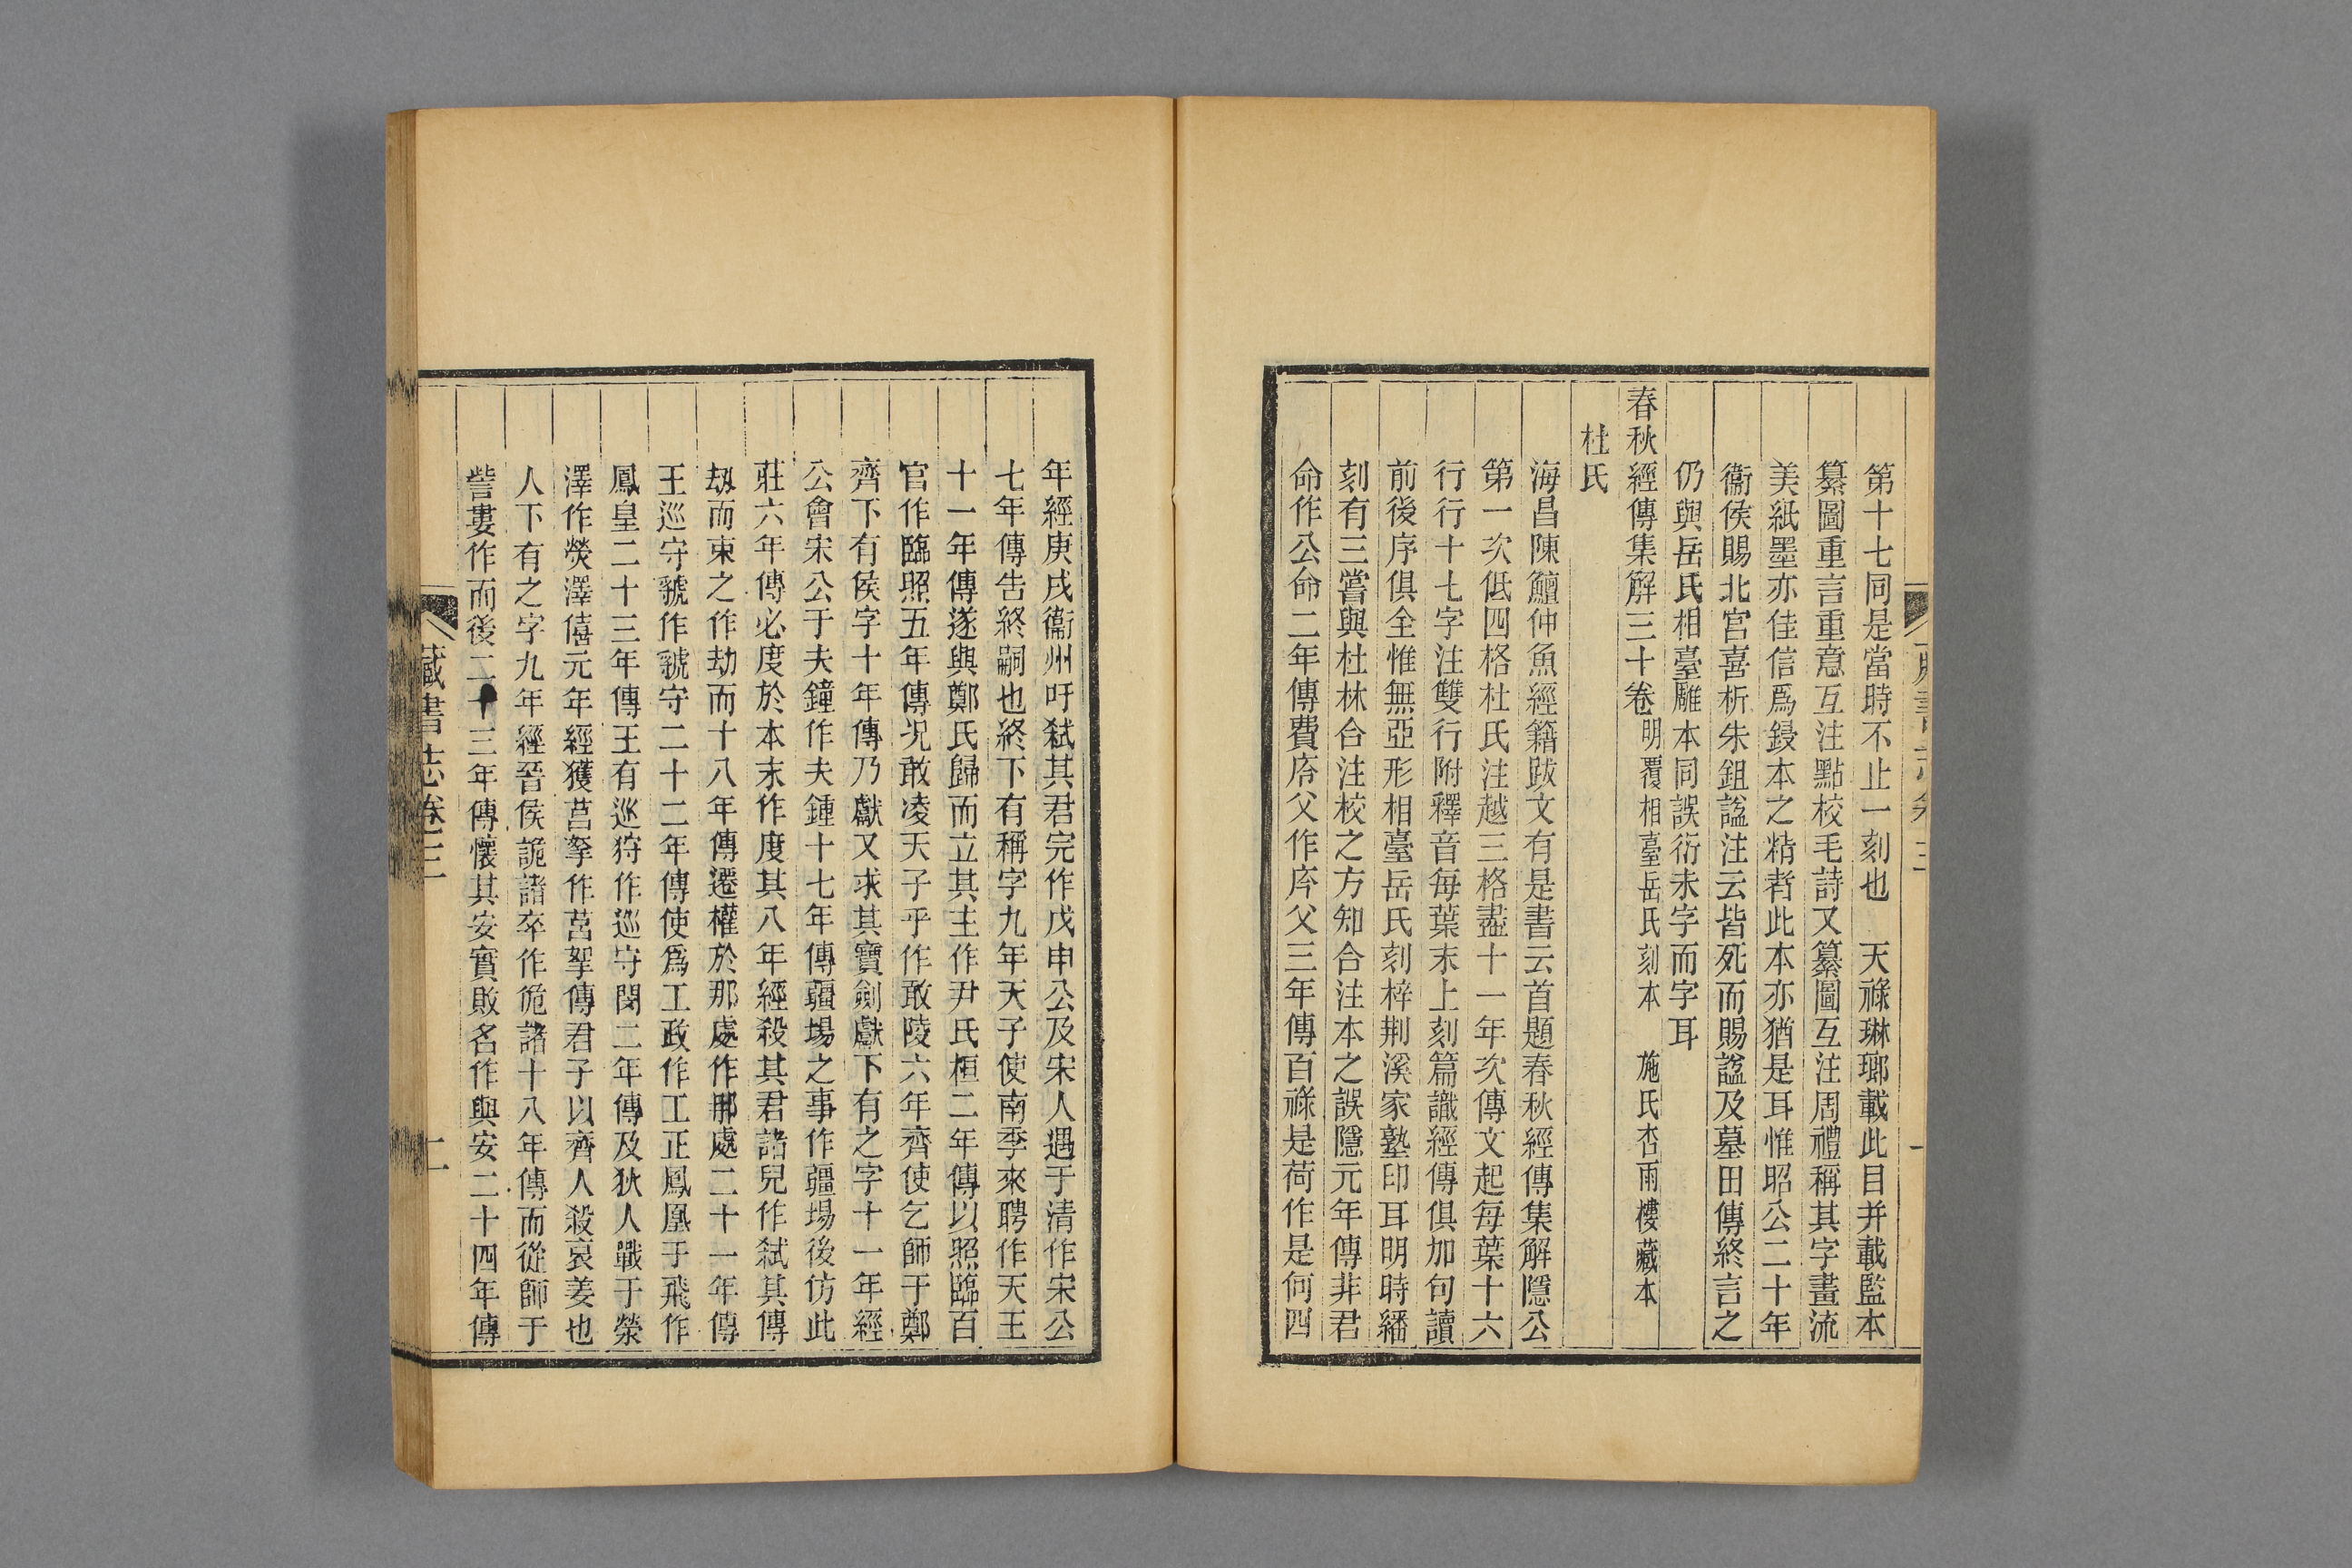 第十七同是當時不止一刻也　天祿琳瑯載此目并載監本
纂圖重言重意互注點校毛詩又纂圖互注周禮稱其字畫流
美紙墨亦佳信爲鋟本之精者此本亦猶是耳惟昭公二十年
衞侯賜北宮喜析朱鉏諡注云皆死而賜諡及墓田傳終言之
仍與岳氏相臺雕本同誤衍未字而字耳
春秋經傳集解三十卷 明覆相臺岳氏刻本　施氏杏雨樓藏本
杜氏
海昌陳鱣仲魚經籍跋文有是書云首題春秋經傳集解隱公
第一次低四格杜氏注越三格盡十一年次傳文起每葉十六
行行十七字注雙行附釋音每葉末上刻篇識經傳俱加句讀
前後序俱全惟無亞形相臺岳氏刻梓荆溪家塾印耳明時繙
刻有三嘗與杜林合注校之方知合注本之誤隱元年傳非君
命作公命二年傳費庈父作庌父三年傳百祿是荷作是何四
年經庚戌衞州吁弑其君完作戊申公及宋人遇于清作宋公
七年傳告終嗣也終下有稱字九年天子使南季來聘作天王
十一年傳遂與鄭氏歸而立其主作尹氏桓二年傳以照臨百
官作臨照五年傳况敢凌天子乎作敢陵六年齊使乞師于鄭
齊下有侯字十年傳乃獻又求其寶劍獻下有之字十一年經
公會宋公于夫鐘作夫鍾十七年傳疆埸之事作疆場後仿此
莊六年傳必度於本末作度其八年經殺其君諸兒作弑其傳
刼而束之作劫而十八年傳遷權於那處作𨙻處二十一年傳
王巡守虢作虢守二十二年傳使爲工政作工正鳳凰于飛作
鳳皇二十三年傳王有巡狩作巡守閔二年傳及狄人戰于滎
澤作熒澤僖元年經獲莒拏作莒挐傳君子以齊人殺哀姜也
人下有之字九年經晉侯詭諸卒作佹諸十八年傳而從師于
訾婁作而後二十三年傳懷其安實敗名作與安二十四年傳
藏書志卷三
二